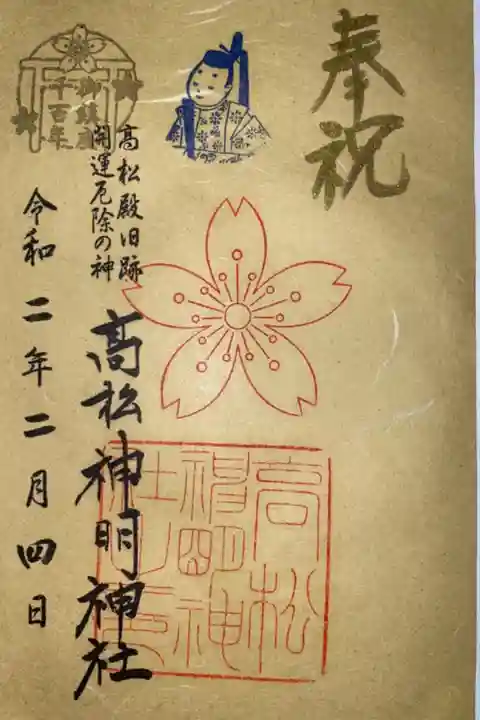 奉祝
高松
神明神
社之印
高松殿旧跡
開運厄除の神
高松神明神社
御鎮座
千百年
令和二年二月四日